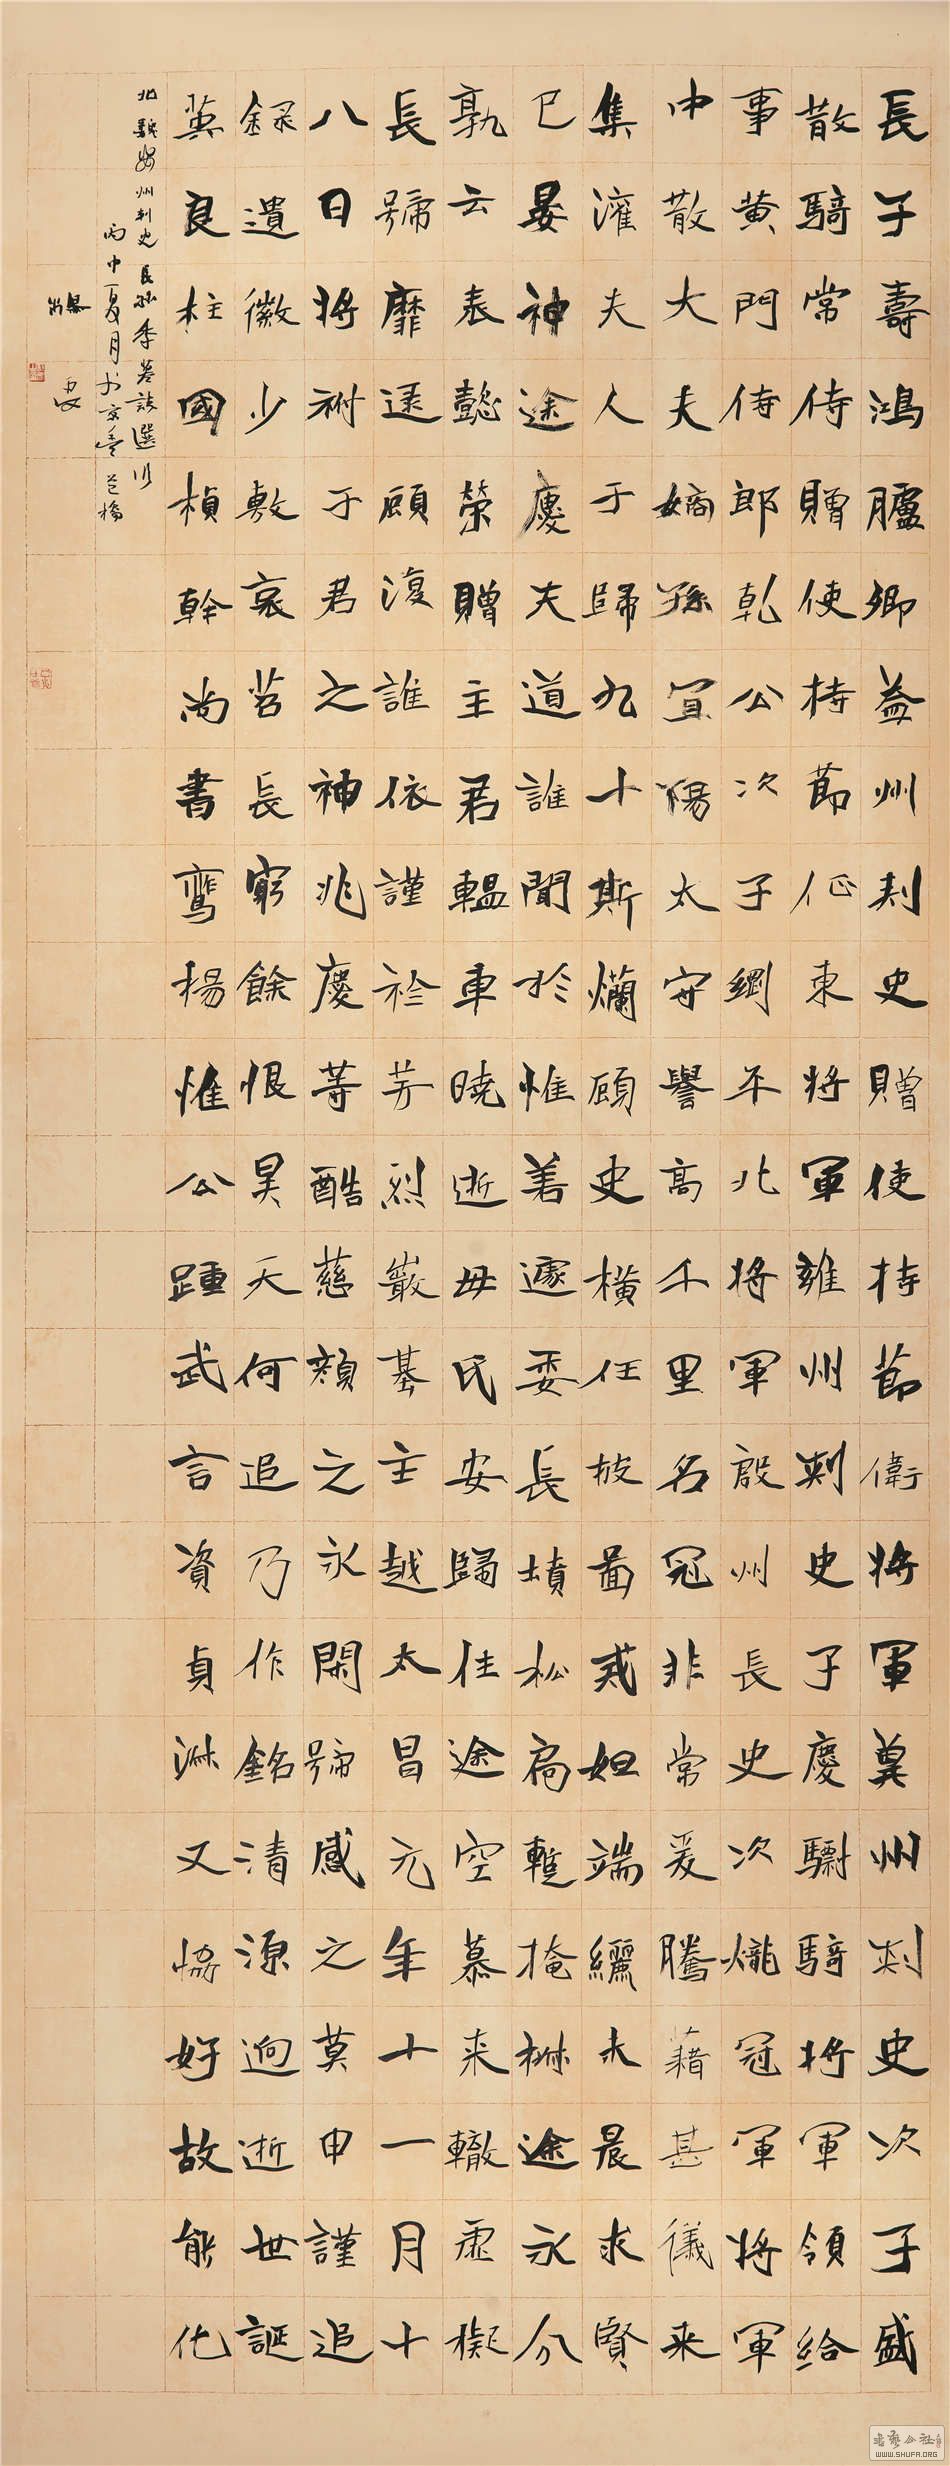 長子壽鴻臚卿益州刺史贈使持節衛將軍冀州刺史次子盛
散騎常侍贈使持節征東將軍雍州刺史子慶驃騎將軍領給
事黃門侍郎乾公次子綱平北將軍殷州長史次爖冠軍將軍
中散大夫嫡孫宜陽太守譽高千里名冠非常爰騰藉甚儀來
集灌夫人于歸九十斯爛顧史橫任披啚戒妲端纚未晨求賢
已晏神途慶夫道誰聞於惟善遽委長墳松扃蹔掩楸途永分
孰云表懿榮贈主君轀車曉逝毋氏安歸住途空慕来轍虛擬
長號靡逮顧復誰依謹於芳烈巖基主越太昌元年十一月十
八日將祔于君之神兆慶等酷慈顏之永閑號感之莫申謹追
錄遺徽少敷哀苦長窮餘恨昊天何追乃作銘清源迥逝世誕
冀良柱國楨幹尚書鸞楊惟公踵武言資貞淋又恊好故能化
北魏 州刺史長孫季墓誌選
丙申夏月於京